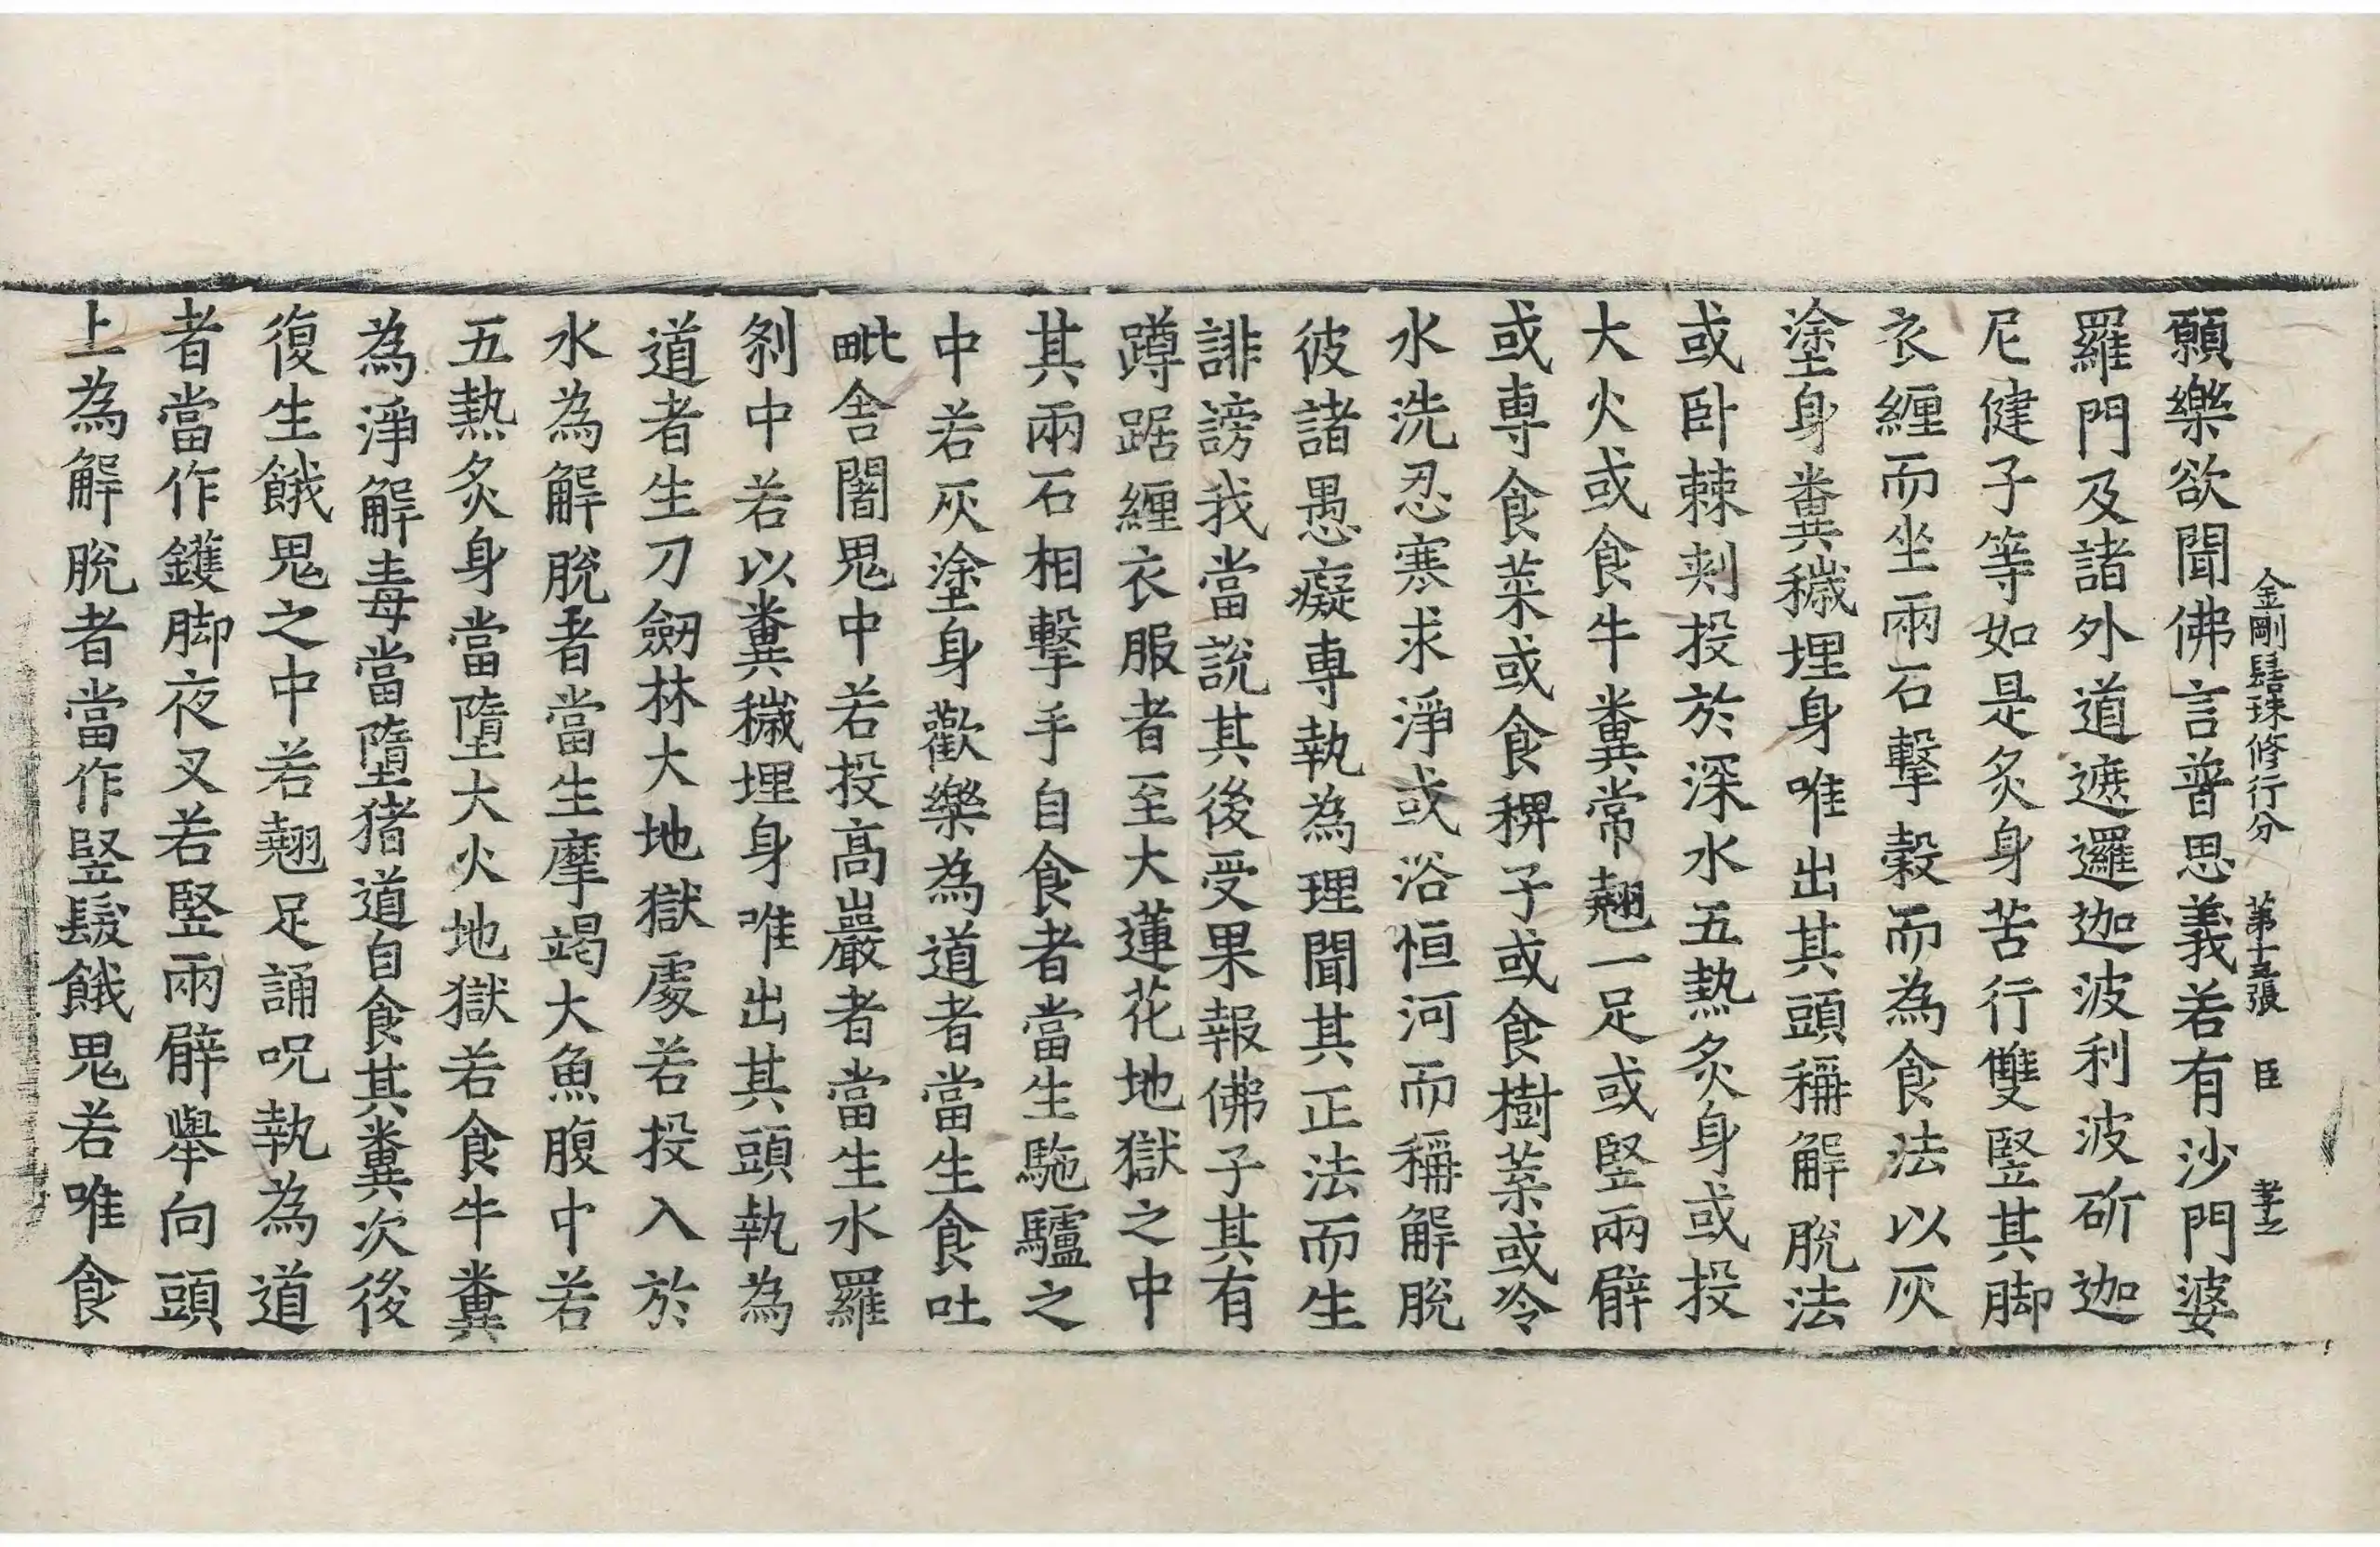 金剛髻珠修行分 第十五張 臣 孝之
願樂欲聞佛言普思義若有沙門婆
羅門及諸外道遮邏迦波利波斫迦
尼健子等如是炙身苦行雙竪其脚
衣纏而坐兩石擊穀而為食法以灰
塗身糞穢埋身唯出其頭稱解脫法
或卧棘刺投於深水五熱炙身或投
大火或食牛糞常翹一足或竪兩臂
或專食菜或食稗子或食樹菓或冷
水洗忍寒求淨或浴恒河而稱解脫
彼諸愚癡專執為理聞其正法而生
誹謗我當說其後受果報佛子其有
蹲踞纏衣服者至大蓮花地獄之中
其兩石相擊手自食者當生駞驢之
中若灰塗身歡樂為道者當生食吐
毗舍闍鬼中若投高巖者當生水羅
剎中若以糞穢埋身唯出其頭執為
道者生刀劒林大地獄處若投入於
水為解脫者當生摩竭大魚腹中若
五熱炙身當墮大火地獄若食牛糞
為淨解毒當墮猪道自食其糞次後
復生餓鬼之中若翹足誦呪執為道
者當作鑊脚夜叉若竪兩臂舉向頭
上為解脫者當作竪髮餓鬼若唯食